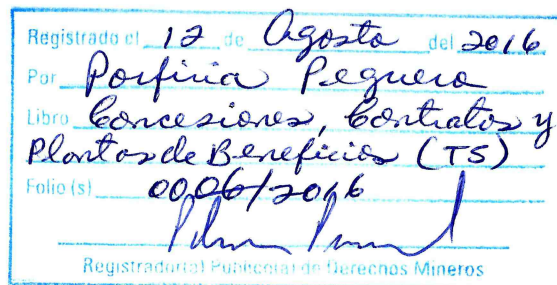 Registrado el 12 de Agosto del 2016
Por Porfiria Peguero
Libro Concesiones, Contratos y
Plantas de Beneficios (TS)
Folio (s) 0006/2016
Registrador(a) Público(a) de Derechos Mineros